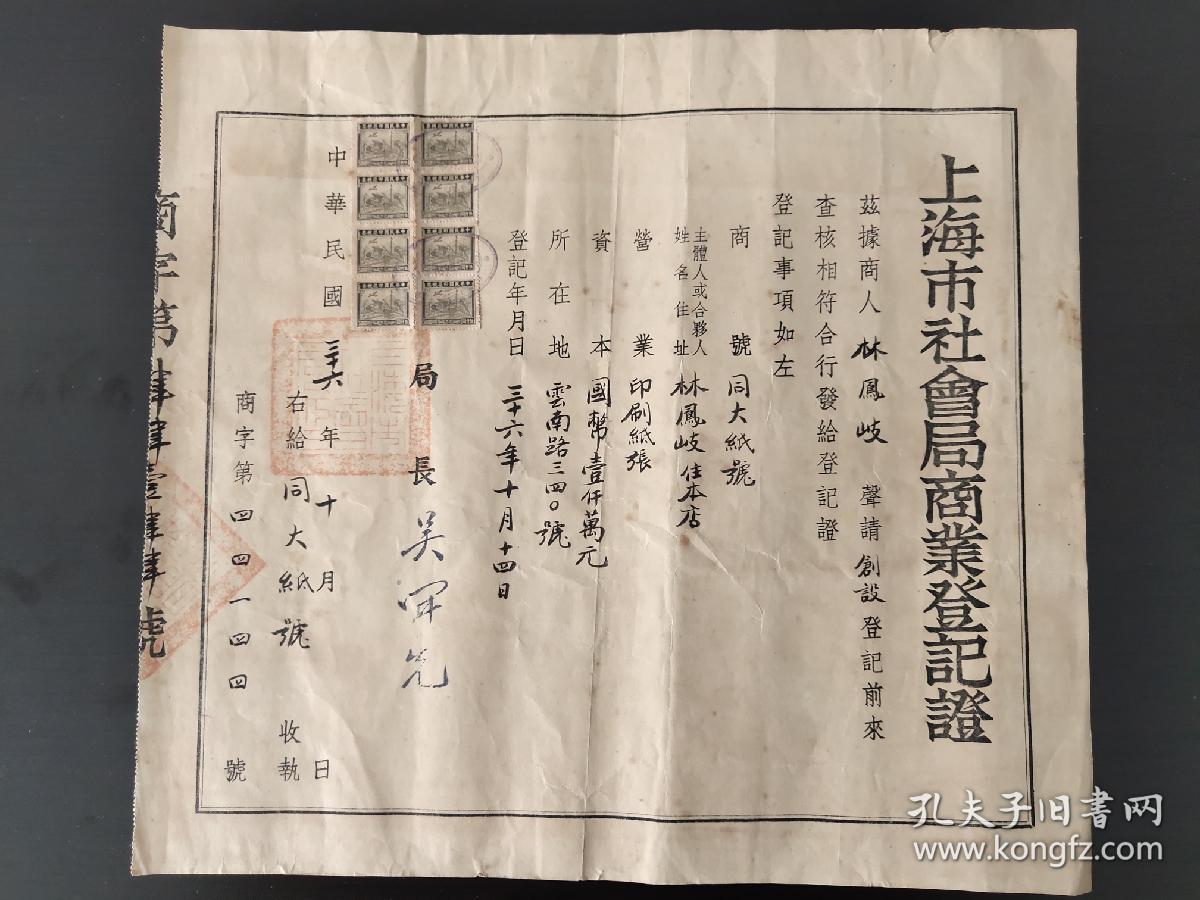 上海市社會局商業登記證
茲據商人 林鳳岐 聲請創設登記前來
查核相符合行發給登記證
登記事項如左
商號 同大紙號
主體人或合夥人姓名住址 林鳳岐 住本店
營業 印刷紙張
資本 國幣壹仟萬元
所在地 雲南路三四〇號
登記年月日 三十六年十月十四日
局長 吳開先
中華民國 三十六年十月 日
右給 同大紙號 收執
商字第四四一四四號
商字第肆肆壹肆肆號
孔夫子旧书网
www.kongfz.com